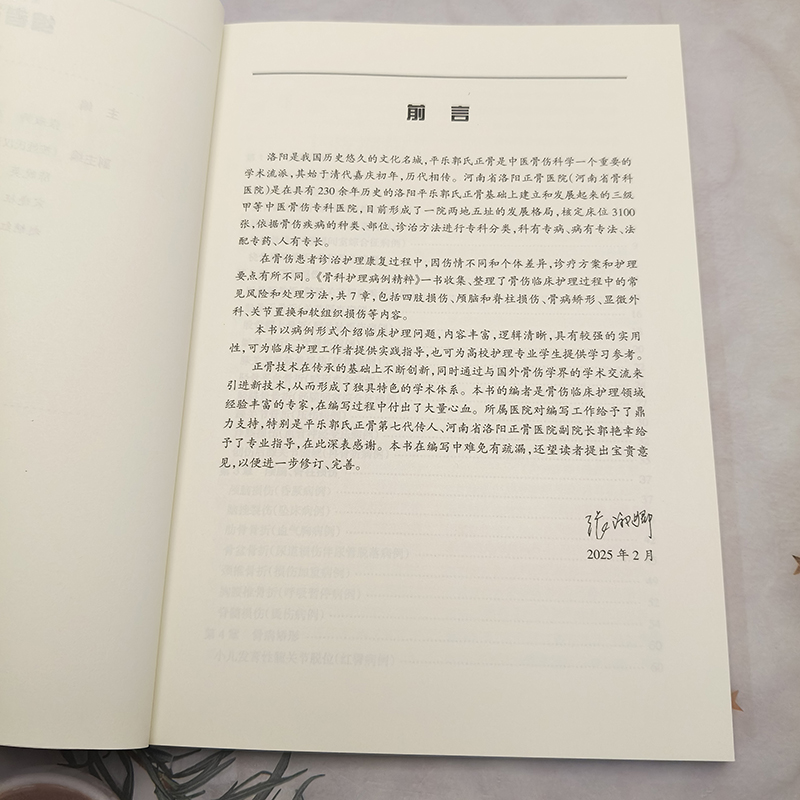 前言
洛阳是我国历史悠久的文化名城，平乐郭氏正骨是中医骨伤科学一个重要的
学术流派，其始于清代嘉庆初年，历代相传。河南省洛阳正骨医院(河南省骨科
医院)是在具有230余年历史的洛阳平乐郭氏正骨基础上建立和发展起来的三级
甲等中医骨伤专科医院，目前形成了一院两地五址的发展格局，核定床位3100
张，依据骨伤疾病的种类、部位、诊治方法进行专科分类，科有专病、病有专法、法
配专药、人有专长。
在骨伤患者诊治护理康复过程中，因伤情不同和个体差异，诊疗方案和护理
要点有所不同。《骨科护理病例精粹》一书收集、整理了骨伤临床护理过程中的常
见风险和处理方法，共7章，包括四肢损伤、颅脑和脊柱损伤、骨病矫形、显微外
科、关节置换和软组织损伤等内容。
本书以病例形式介绍临床护理问题，内容丰富，逻辑清晰，具有较强的实用
性，可为临床护理工作者提供实践指导，也可为高校护理专业学生提供学习参考。
正骨技术在传承的基础上不断创新，同时通过与国外骨伤学界的学术交流来
引进新技术，从而形成了独具特色的学术体系。本书的编者是骨伤临床护理领域
经验丰富的专家，在编写过程中付出了大量心血。所属医院对编写工作给予了鼎
力支持，特别是平乐郭氏正骨第七代传人、河南省洛阳正骨医院副院长郭艳幸给
予了专业指导，在此深表感谢。本书在编写中难免有疏漏，还望读者提出宝贵意
见，以便进一步修订、完善。
2025年2月